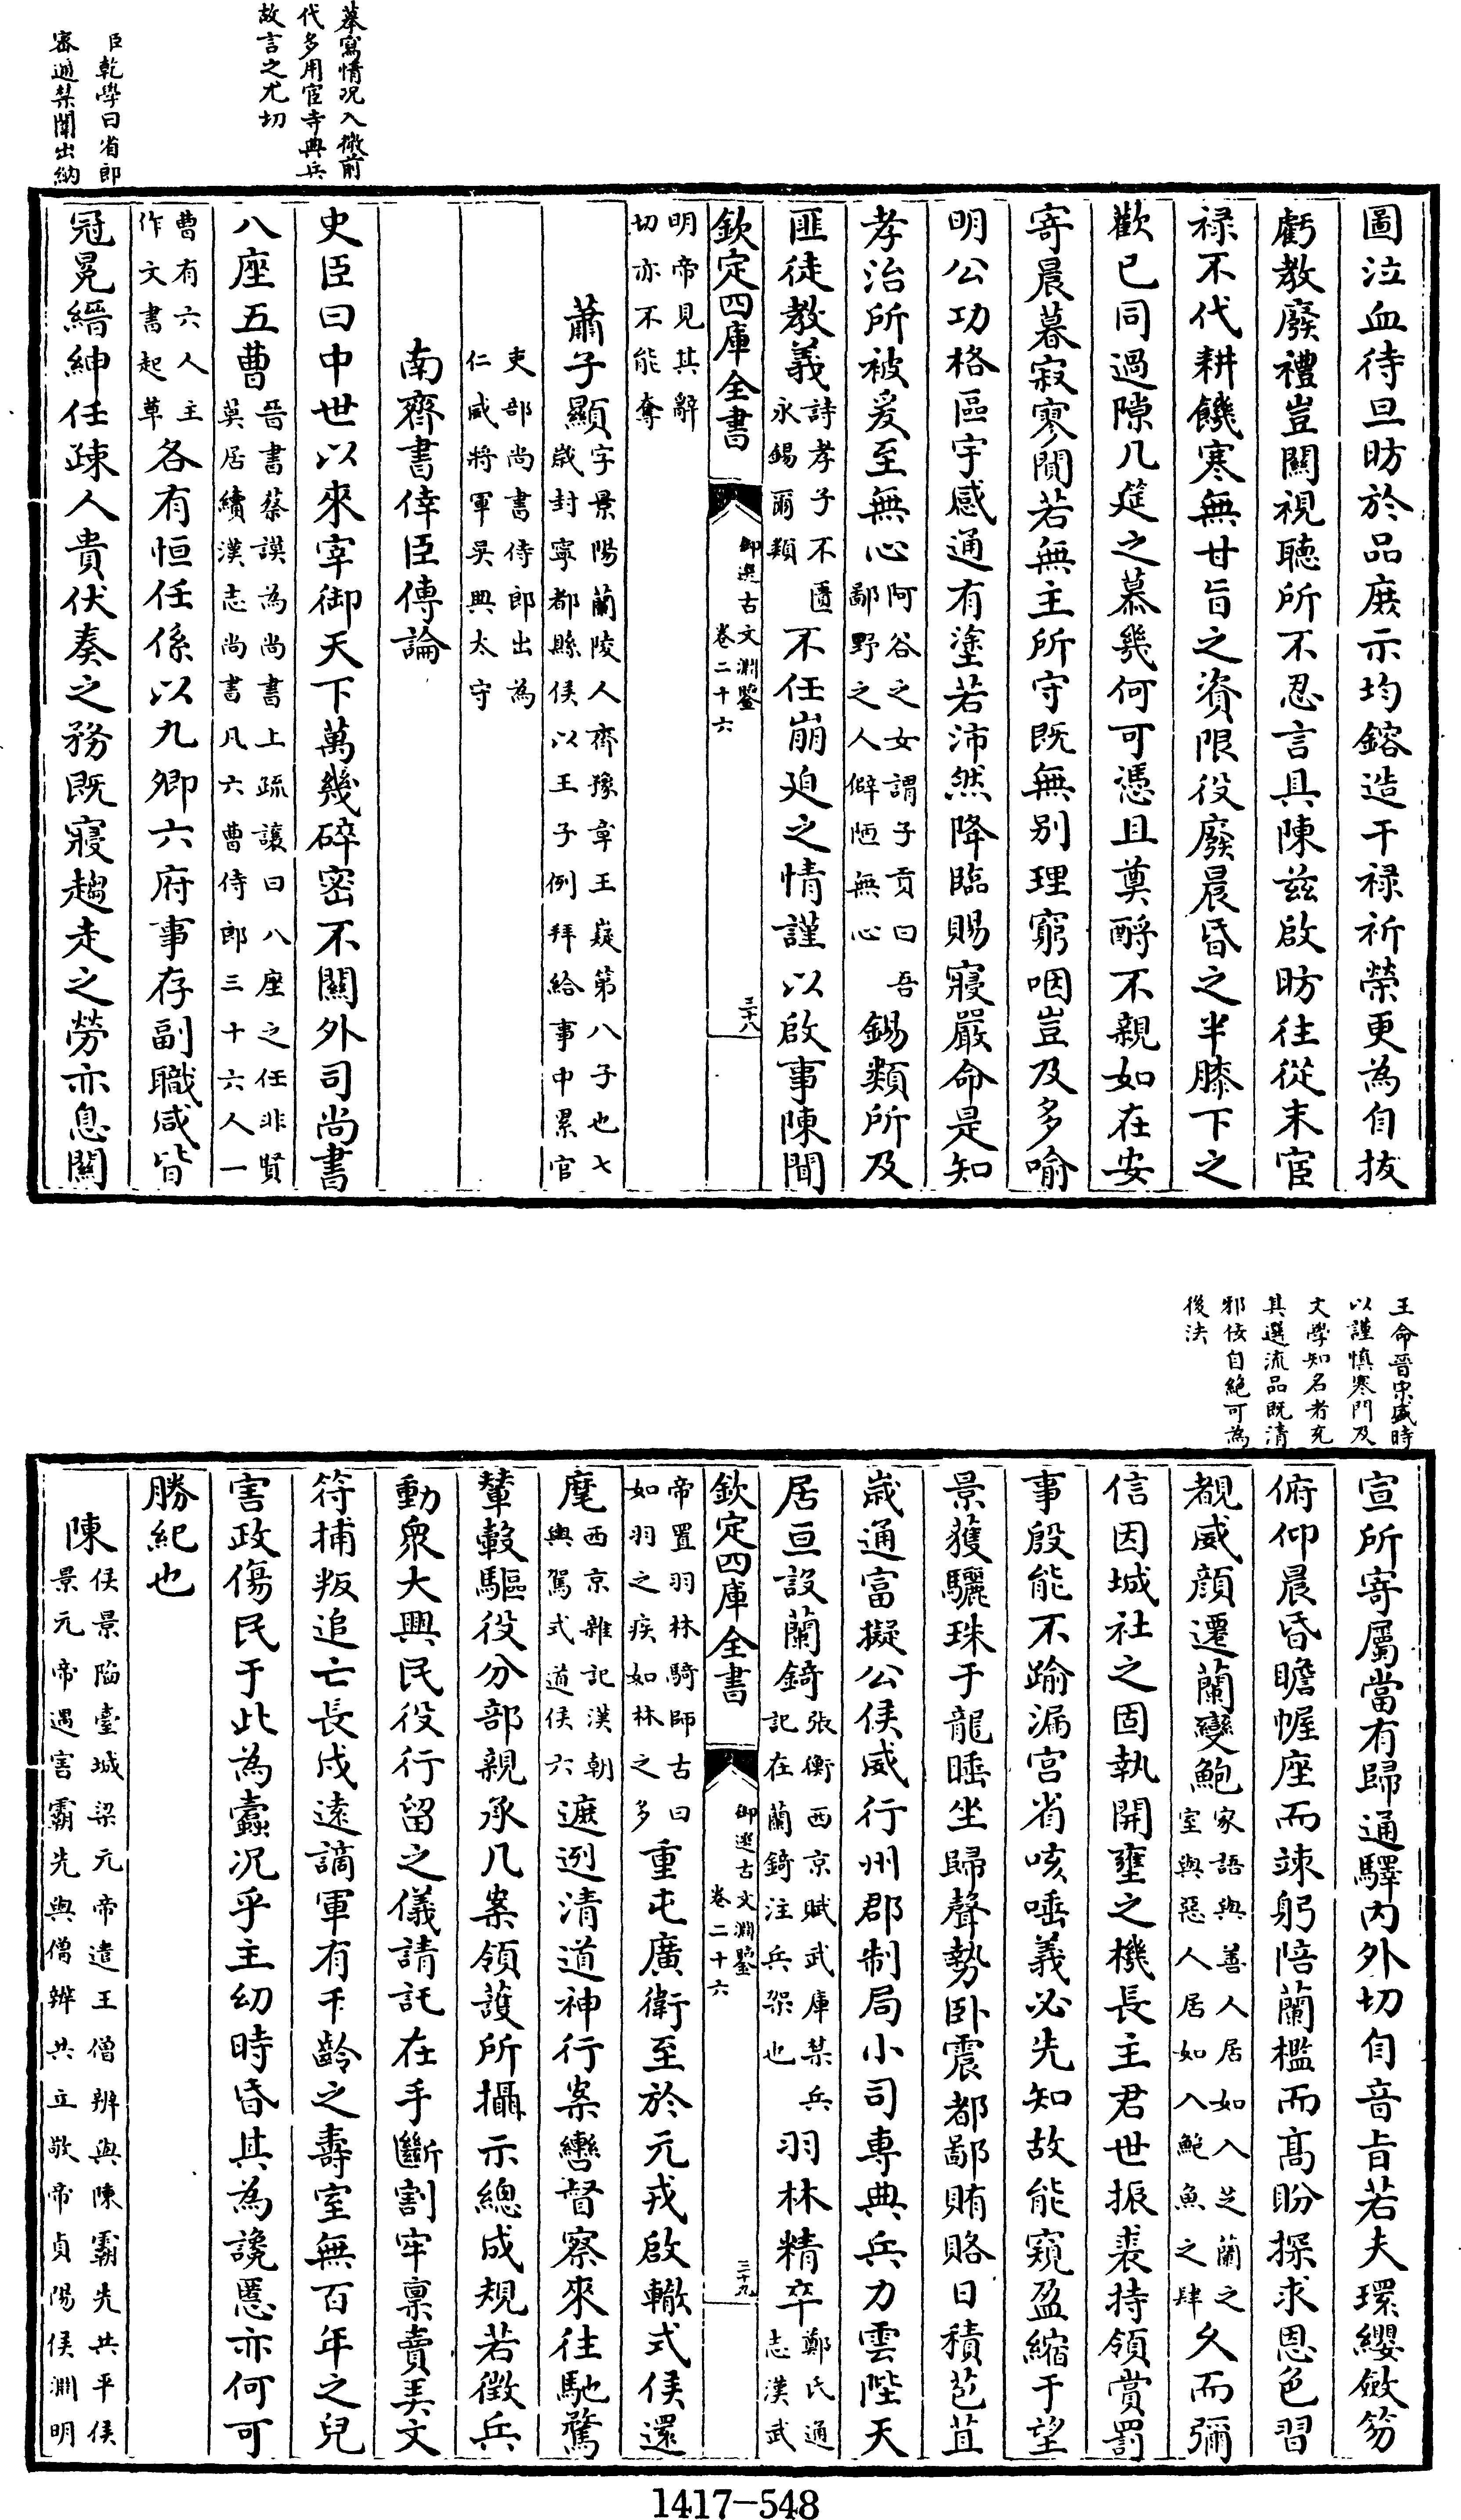 摹寫情况入微前
代多用宦寺典兵
故言之尤切
臣乾學曰省郎
審通禁闈出納
圖泣血待旦昉於品庶示均鎔造干禄祈榮更為自拔
虧教廢禮豈關視聽所不忍言具陳兹啟昉往從末宦
禄不代耕饑寒無甘旨之資限役廢晨昏之半膝下之
歡已同過隙几筵之慕幾何可憑且奠酹不親如在安
寄晨暮寂寥閴若無主所守既無别理窮咽豈及多喻
明公功格區宇感通有塗若沛然降臨賜寢嚴命是知
孝治所被爰至無心阿谷之女謂子貢曰吾鄙野之人僻陋無心錫類所及
匪徒教義詩孝子不匱永錫爾類不任崩迫之情謹以啟事陳聞
欽定四庫全書 御選古文淵鑒卷二十六 三十八
明帝見其辭切亦不能奪
蕭子顯字景陽蘭陵人齊豫章王嶷第八子也七歲封寧都縣侯以王子例拜給事中累官
吏部尚書侍郎出為仁威將軍吳興太守
南齊書倖臣傳論
史臣曰中世以來宰御天下萬幾碎密不關外司尚書
八座五曹晉書蔡謨為尚書上疏讓曰八座之任非賢莫居續漢志尚書凡六曹侍郎三十六人一
曹有六人主作文書起草各有恒任係以九卿六府事存副職咸皆
冠冕縉紳任疎人貴伏奏之務既寢趨走之勞亦息關
王命晉宋盛時
以謹慎寒門及
文學知名者充
其選流品既清
邪佞自絶可為
後法
宣所寄屬當有歸通驛內外切自音旨若夫環纓斂笏
俯仰晨昏瞻幄座而竦躬陪蘭檻而高盼探求恩色習
覩威顔遷蘭變鮑家語與善人居如入芝蘭之室與惡人居如入鮑魚之肆久而彌
信因城社之固執開壅之機長主君世振裘持領賞罰
事殷能不踰漏宫省咳唾義必先知故能窺盈縮于望
景獲驪珠于龍睡坐歸聲勢卧震都鄙賄賂日積苞苴
歲通富擬公侯威行州郡制局小司專典兵力雲陛天
居亘設蘭錡張衡西京賦武庫禁兵記在蘭錡注兵架也羽林精卒鄭氏通志漢武
欽定四庫全書 御選古文淵鑒卷二十六 三十九
帝置羽林騎師古曰如羽之疾如林之多重屯廣衛至於元戎啟轍式侯還
麾西京雜記漢朝輿駕式道侯六遮迾清道神行案轡督察來往馳騖
輦轂驅役分部親承几案領護所攝示總成規若徵兵
動衆大興民役行留之儀請託在手斷割牢稟賣弄文
符捕叛追亡長戍遠謫軍有千齡之壽室無百年之兒
害政傷民于此為蠧况乎主幼時昏其為讒慝亦何可
勝紀也
陳侯景陷臺城梁元帝遣王僧辨與陳霸先共平侯景元帝遇害霸先與僧辨共立敬帝貞陽侯淵明
1417-548